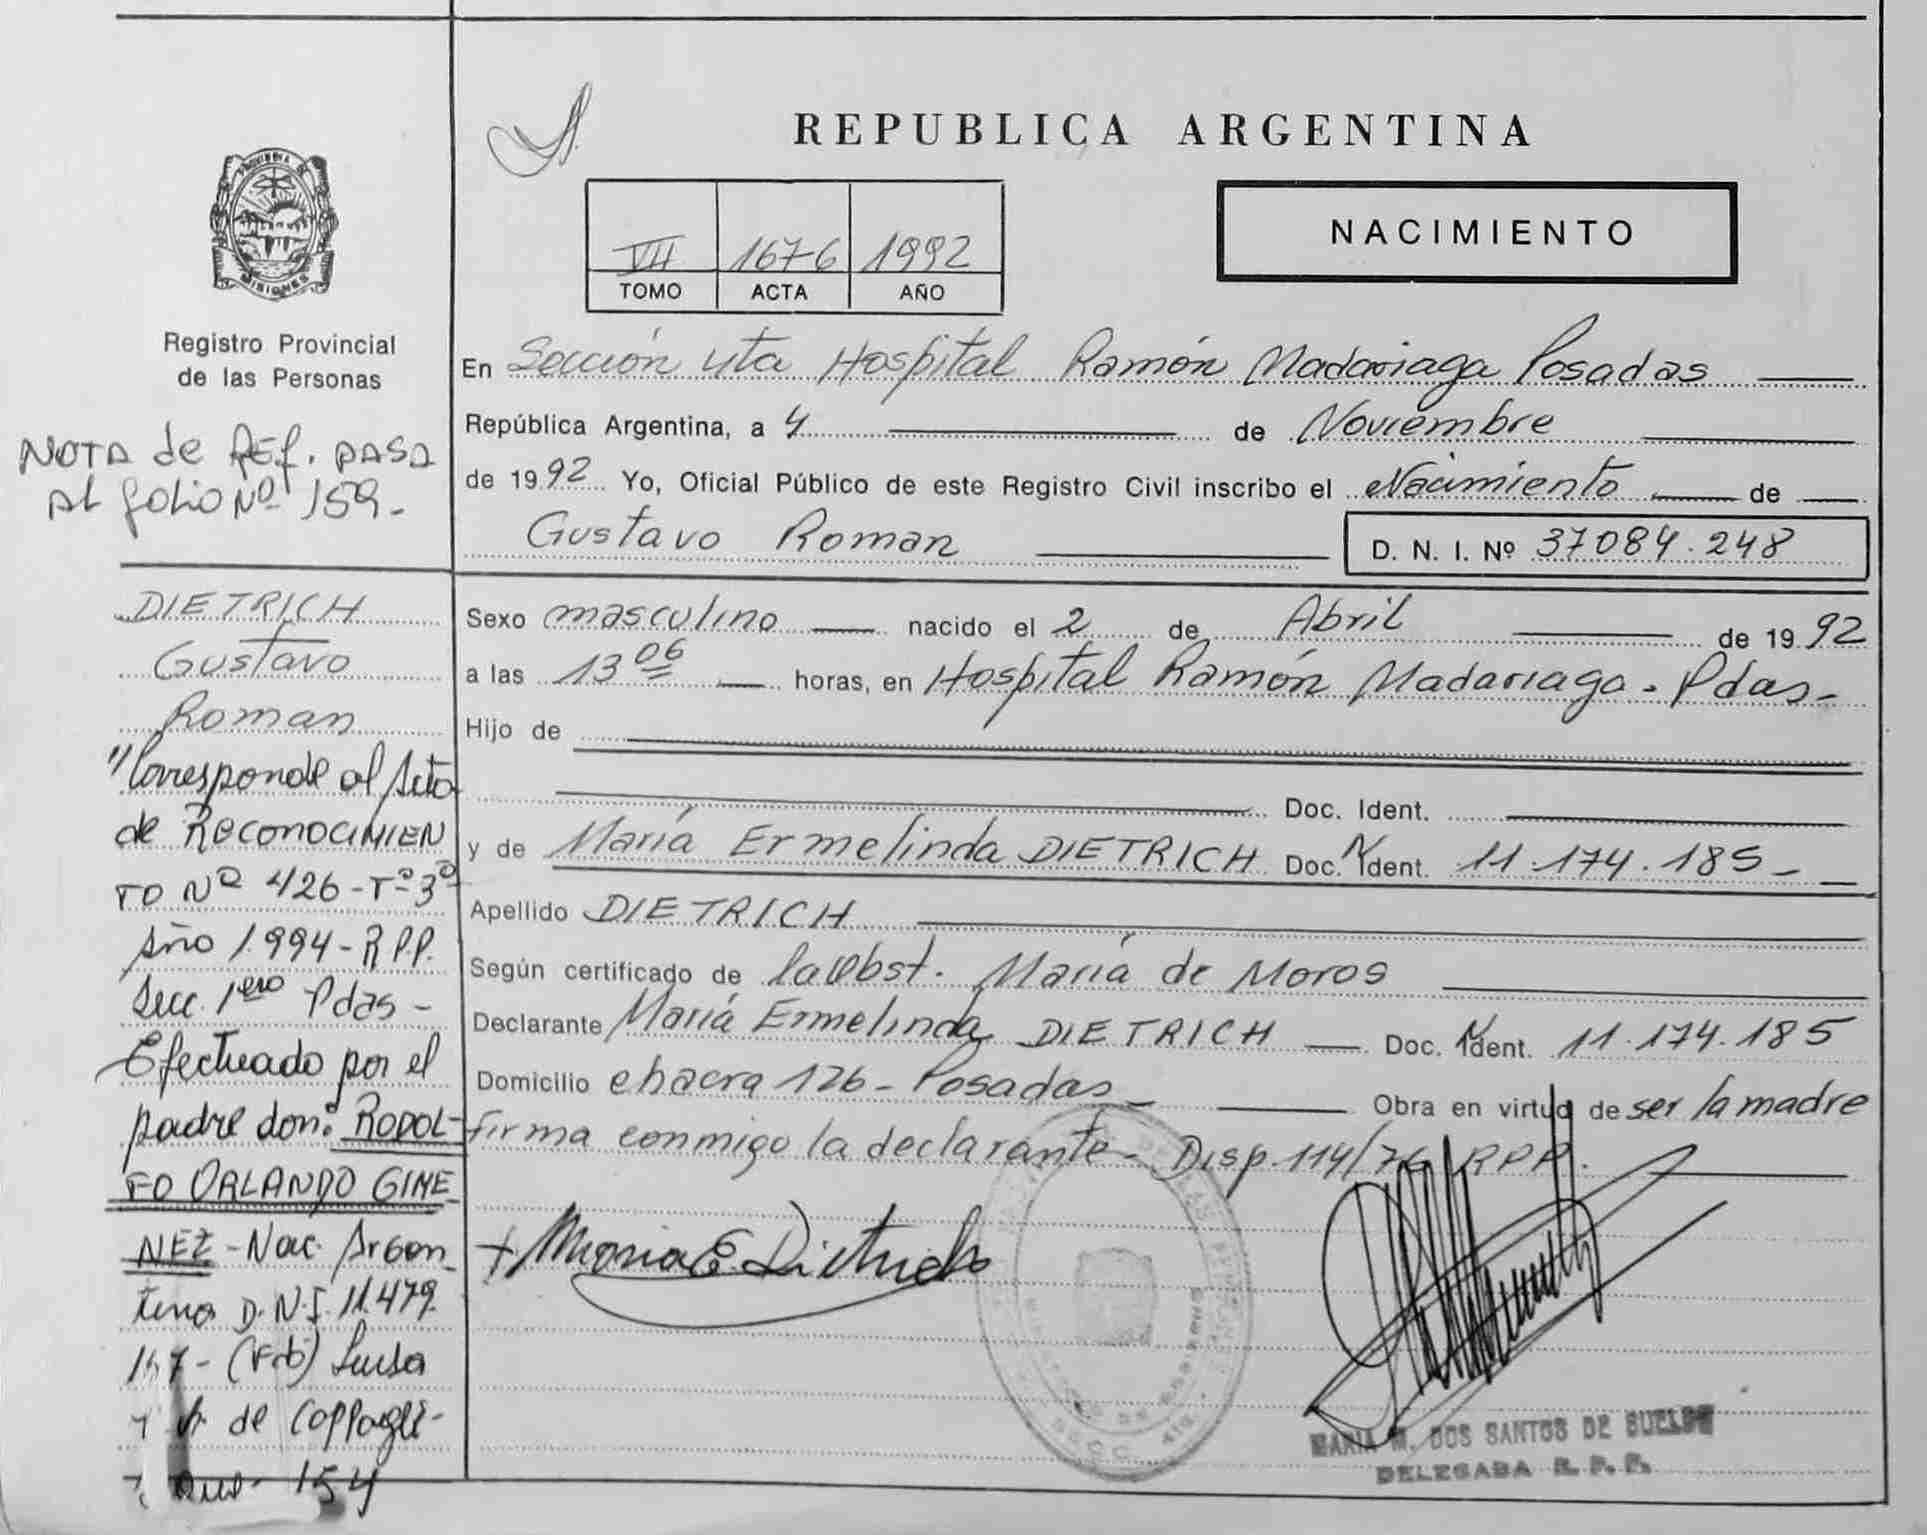 REPUBLICA ARGENTINA
PROVINCIA DE
MISIONES
Registro Provincial
de las Personas
NOTA de REf. PASA
Al folio Nº 159.-
VII 1676 1992
TOMO ACTA AÑO
NACIMIENTO
En Sección 4ta Hospital Ramón Madariaga Posadas
República Argentina, a 4 de Noviembre
de 1992 Yo, Oficial Público de este Registro Civil inscribo el Nacimiento de
Gustavo Roman D. N. I. Nº 37084.248
DIETRICH
Gustavo
Roman
"Corresponde al Acta
de RECONOCIMIEN
TO Nº 426-Tº3º
Año 1.994- R.P.P.
Secc. 1ero Pdas -
Efectuado por el
padre don: RODOL-
FO ORLANDO GIME
NEZ - Nac. Argen
tina D.N.I. 11.479.
157- (Fdo) Luisa
de Coppagli-
154
Sexo masculino nacido el 2 de Abril de 1992
a las 13 06 horas, en Hospital Ramón Madariaga - Pdas-
Hijo de
Doc. Ident.
y de María Ermelinda DIETRICH Doc. Ident. 11.174.185-
Apellido DIETRICH
Según certificado de la Obst. María de Moros
Declarante María Ermelinda DIETRICH Doc. Ident. 11.174.185
Domicilio chacra 126- Posadas Obra en virtud de ser la madre
firma conmigo la declarante- Disp. 114/76 RPP.
+ Maria E. Dietrich
MARIA M. DOS SANTOS DE BUELDE
DELEGADA R. P. P.